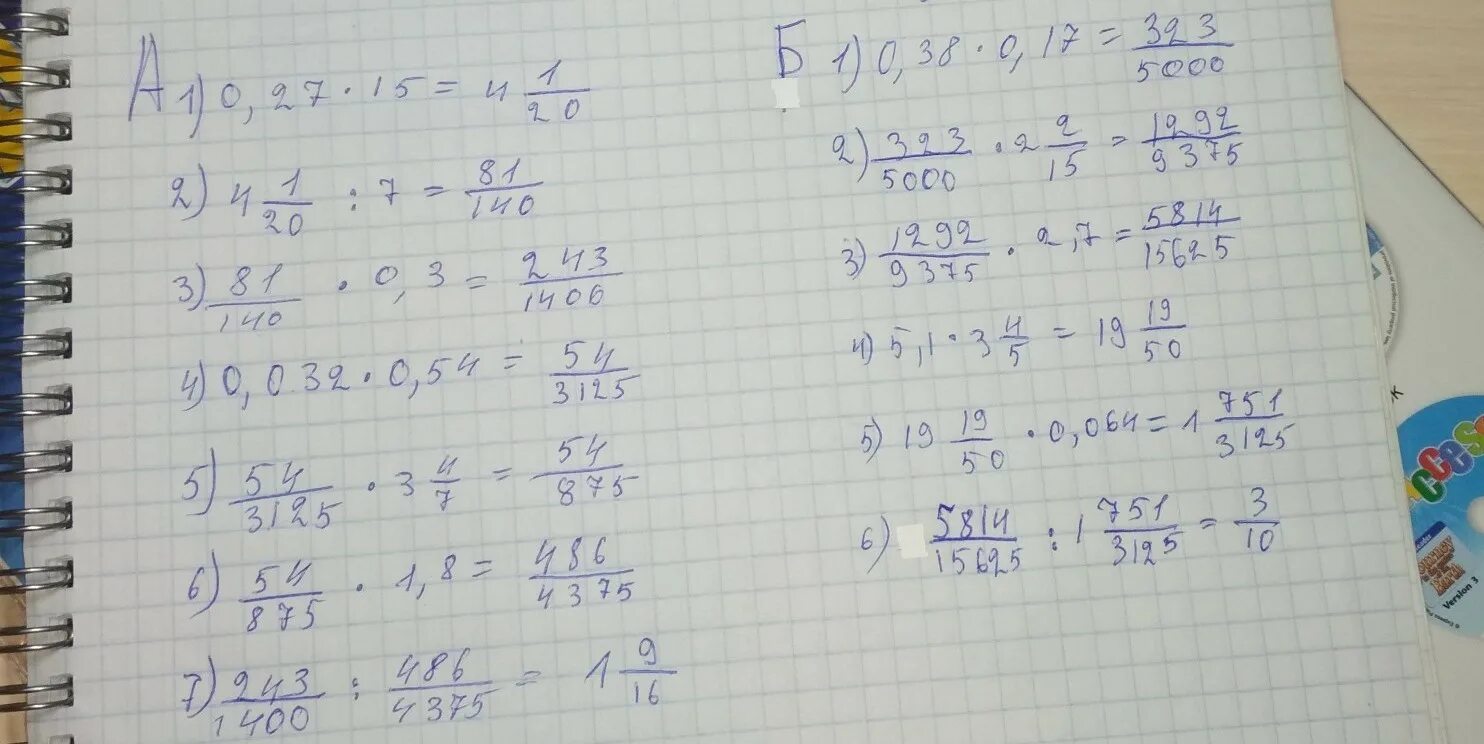 А 1) 0,27 · 15 = 4 1/20
2) 4 1/20 : 7 = 81/140
3) 81/140 · 0,3 = 243/1400
4) 0,032 · 0,54 = 54/3125
5) 54/3125 · 3 4/7 = 54/875
6) 54/875 · 1,8 = 486/4375
7) 243/1400 : 486/4375 = 1 9/16
Б 1) 0,38 · 0,17 = 323/5000
2) 323/5000 · 2 2/15 = 1292/9375
3) 1292/9375 · 2,7 = 5814/15625
4) 5,1 · 3 4/5 = 19 19/50
5) 19 19/50 · 0,064 = 1 751/3125
6) 5814/15625 : 1 751/3125 = 3/10
Access
Version 3